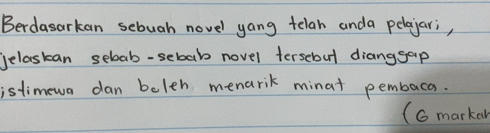 Berdasarkan sebuah novel yang telah anda pelajari,
jelaskan sebab-sebab novel tersebut dianggap
istimewa dan boleh menarik minat pembaca.
(6 markah